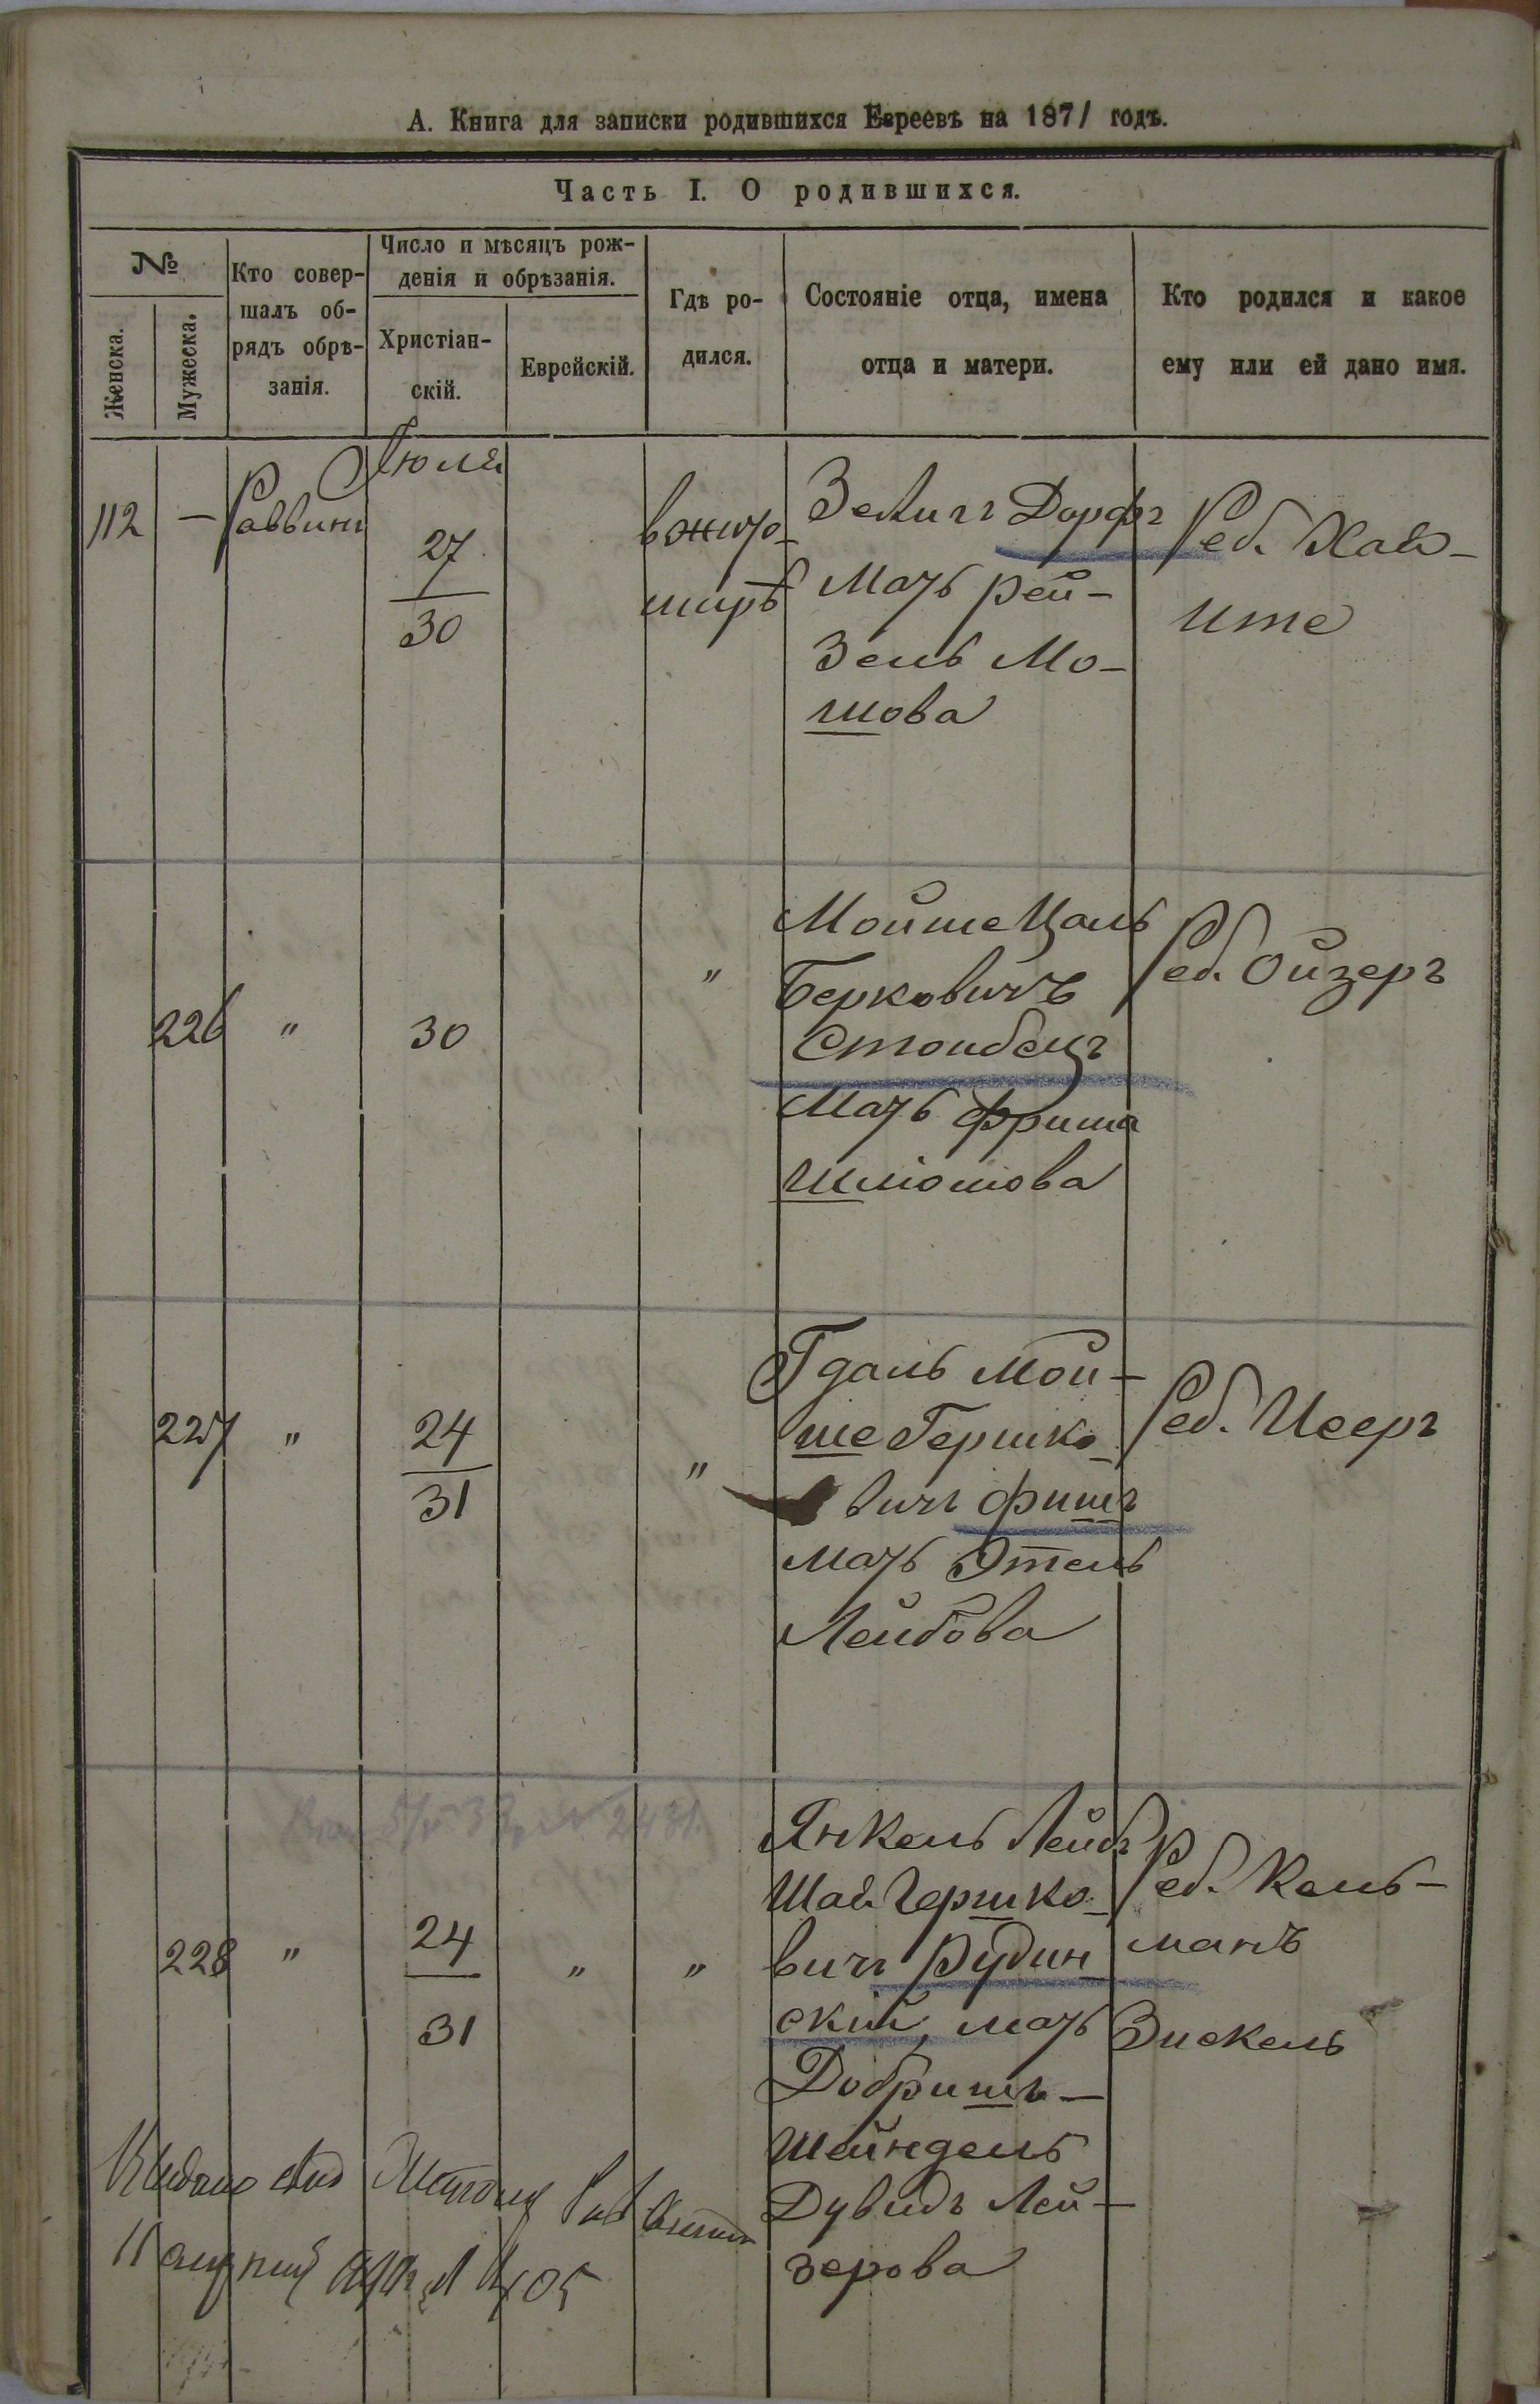 А. Книга для записки родившихся Евреевъ на 1871 годъ.
Часть I. О родившихся.
№
Женска.
Мужеска.
Кто совер-
шалъ об-
рядъ обрѣ-
занія.
Число и мѣсяцъ рож-
денія и обрѣзанія.
Христіан-
скій.
Еврейскій.
Гдѣ ро-
дился.
Состояніе отца, имена
отца и матери.
Кто родился и какое
ему или ей дано имя.
112 — Раввинъ
Іюля
27
30
в Жито-
мирѣ
Зелигъ Дорфъ
Мать Рей-
зель Мо-
шова
Реб. Хая-
Ите
226 "
30
"
Мойше Цаль
Берковичъ
Столбецъ
Мать Фрима
Шліомова
Реб. Ойзеръ
227 "
24
31
"
Гдаль Мой-
ше Гершко-
вичъ Фишъ
Мать Этель
Лейбова
Реб. Исеръ
228 "
24
31
" "
Янкель Лейбъ
Шая Гершко-
вичъ Рудин
скій, мать
Добришъ-
Шейндель
Дувидъ Лей-
зерова
Реб. Кель-
манъ
Зискель